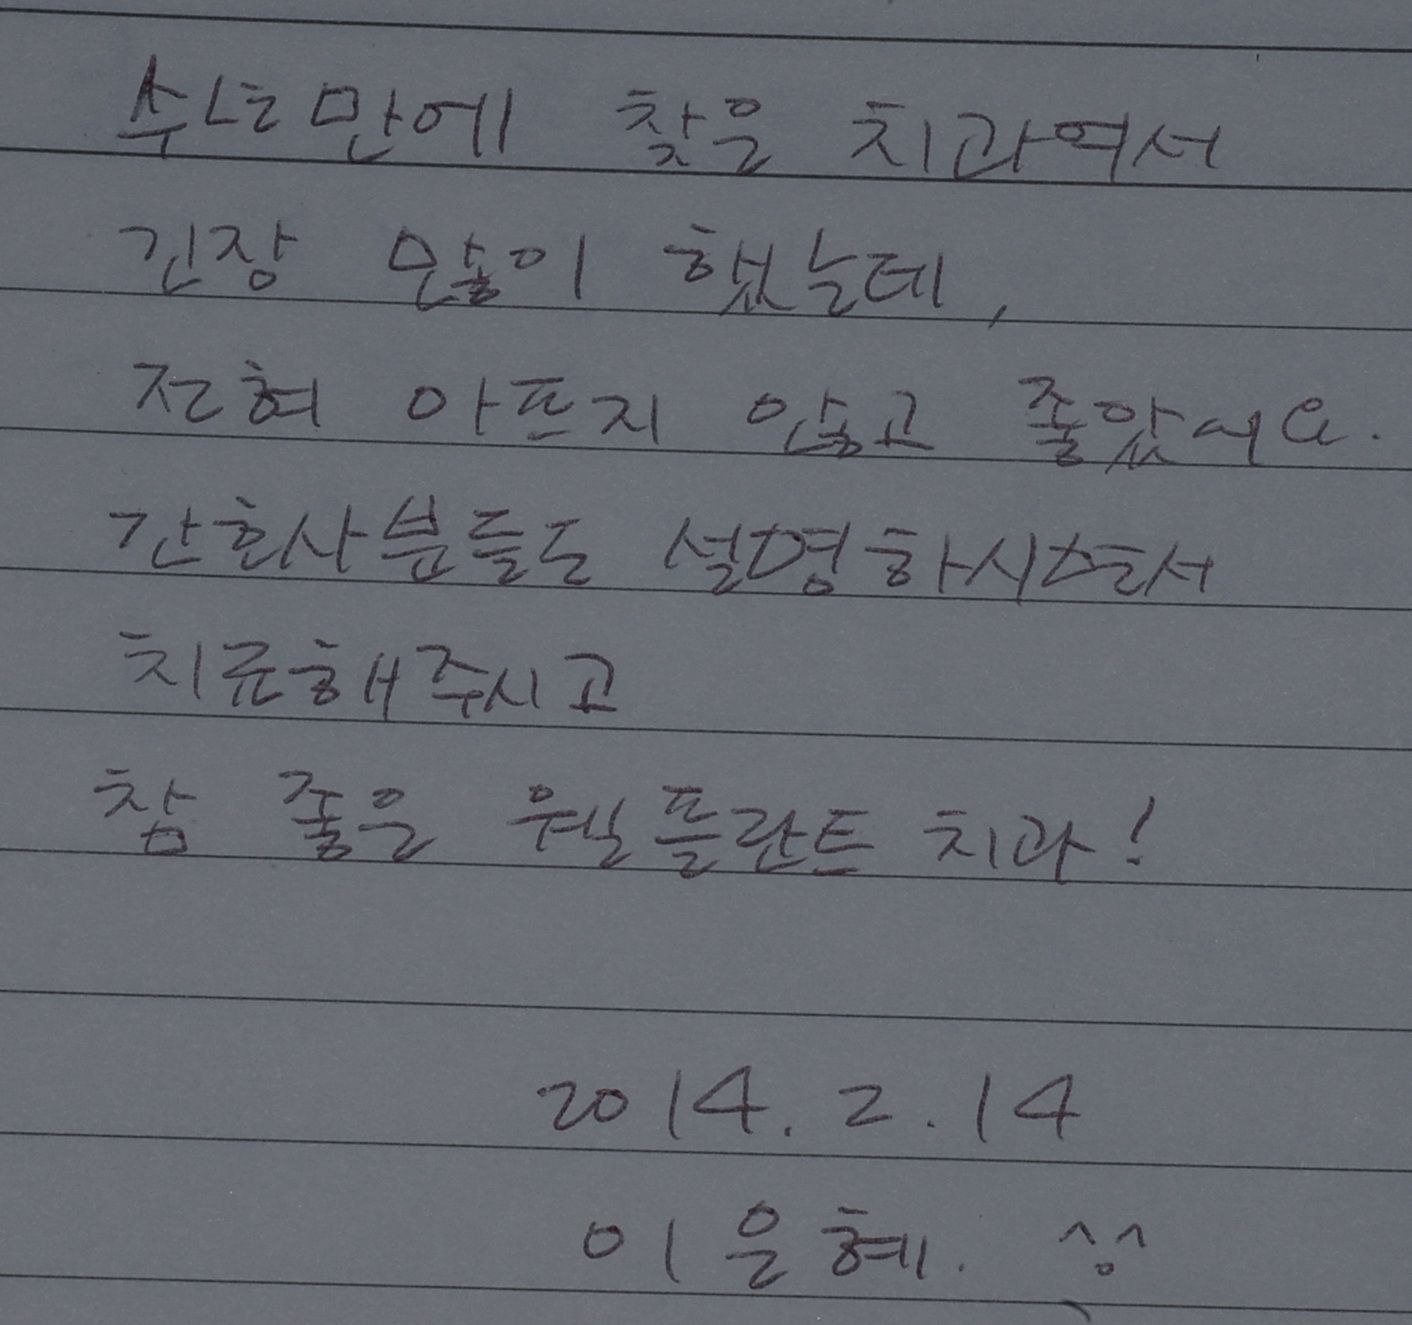 수년만에 찾은 치과여서
긴장 많이 했는데,
전혀 아프지 않고 좋았어요.
간호사분들도 설명하시면서
치료해주시고
참 좋은 웰플란트 치과!
2014. 2. 14
이은혜. ^^